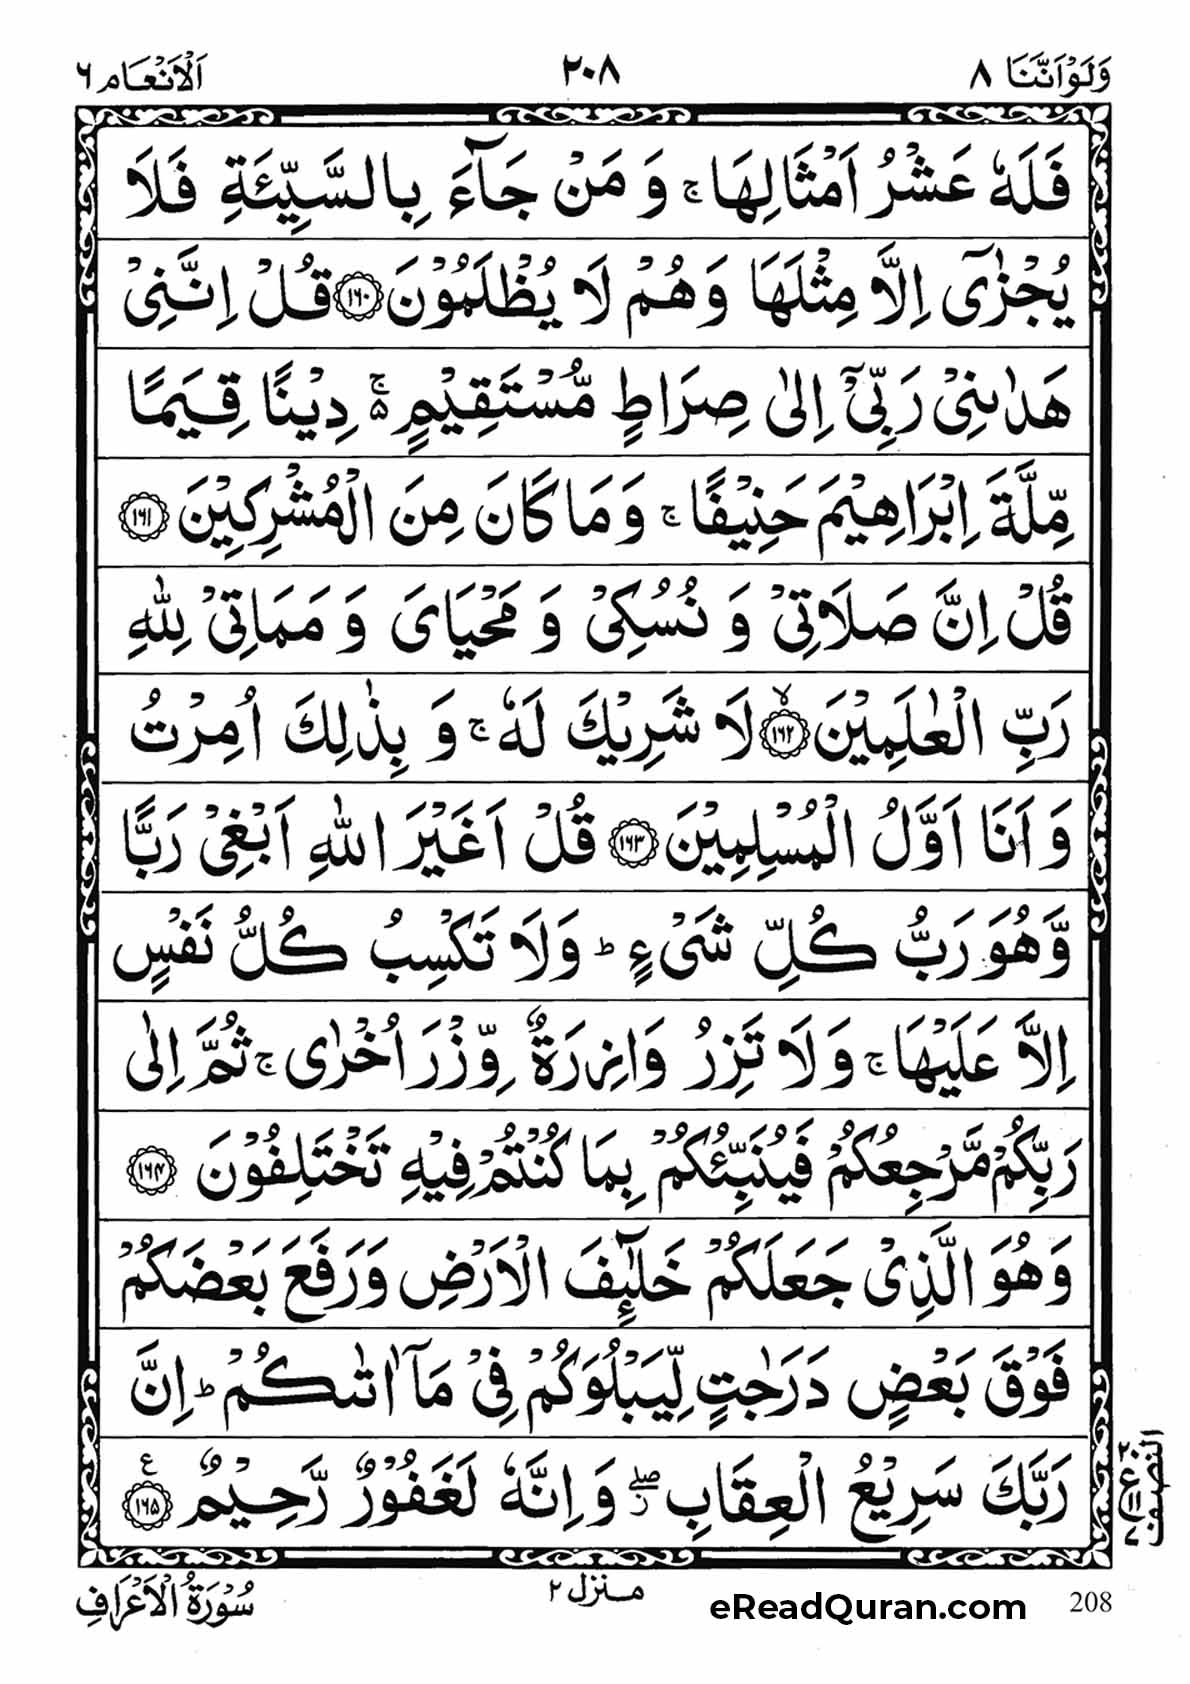 وَلَوْاَنَّنَا ٨
٢٠٨
اَلْاَنْعَام ٦
فَلَهٗ عَشْرُ اَمْثَالِهَا ۚ وَ مَنْ جَآءَ بِالسَّيِّئَةِ فَلَا
يُجْزٰٓى اِلَّا مِثْلَهَا وَهُمْ لَا يُظْلَمُوْنَ ﴿١٦٠﴾ قُلْ اِنَّنِىْ
هَدٰىنِىْ رَبِّىْٓ اِلٰى صِرَاطٍ مُّسْتَقِيْمٍ ۚ۬ دِيْنًا قِيَمًا
مِّلَّةَ اِبْرَاهِيْمَ حَنِيْفًا ۚ وَ مَا كَانَ مِنَ الْمُشْرِكِيْنَ ﴿١٦١﴾
قُلْ اِنَّ صَلَاتِىْ وَ نُسُكِىْ وَ مَحْيَاىَ وَ مَمَاتِىْ لِلّٰهِ
رَبِّ الْعٰلَمِيْنَ ۙ﴿١٦٢﴾ لَا شَرِيْكَ لَهٗ ۚ وَ بِذٰلِكَ اُمِرْتُ
وَ اَنَا اَوَّلُ الْمُسْلِمِيْنَ ﴿١٦٣﴾ قُلْ اَغَيْرَ اللّٰهِ اَبْغِىْ رَبًّا
وَّ هُوَ رَبُّ كُلِّ شَىْءٍ ؕ وَلَا تَكْسِبُ كُلُّ نَفْسٍ
اِلَّا عَلَيْهَا ۚ وَلَا تَزِرُ وَازِرَةٌ وِّزْرَ اُخْرٰى ۚ ثُمَّ اِلٰى
رَبِّكُمْ مَّرْجِعُكُمْ فَيُنَبِّئُكُمْ بِمَا كُنْتُمْ فِيْهِ تَخْتَلِفُوْنَ ﴿١٦٤﴾
وَهُوَ الَّذِىْ جَعَلَكُمْ خَلٰٓئِفَ الْاَرْضِ وَرَفَعَ بَعْضَكُمْ
فَوْقَ بَعْضٍ دَرَجٰتٍ لِّيَبْلُوَكُمْ فِىْ مَاۤ اٰتٰىكُمْ ؕ اِنَّ
رَبَّكَ سَرِيْعُ الْعِقَابِ ۖ ز وَ اِنَّهٗ لَغَفُوْرٌ رَّحِيْمٌ ﴿١٦٥﴾ ع
النصف
سُوْرَةُ الْاَعْرَافِ
منزل ٢
eReadQuran.com
208